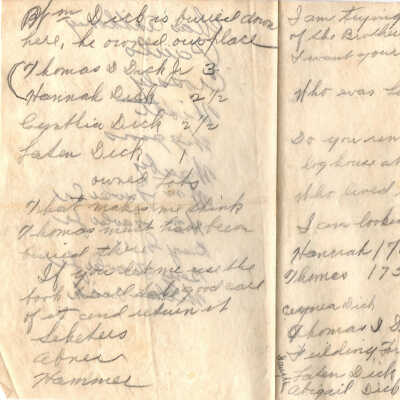 Dick is buried down
here, he owned our place
Thomas D Dick Jr 3
Hannah Dick 2 1/2
Cynthia Dick 2 1/2
Laten Dick 1
owned lots
What makes me think
Thomas must have been
buried there
If you let me use the
book I will take good care
of it and return it
Abner
Hammer
I am trying
of the Brother
I want your
Who was
Do you
log house at
Who lived
I am looking
Hannah 17
Thomas 17
Dick
Thomas
Fielding
Laten Dick
Abigail Dick